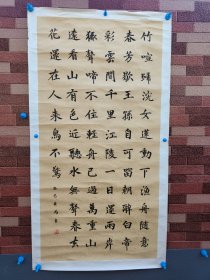 竹喧歸浣女蓮動下漁舟隨意
春芳歇王孫自可留朝辭白帝
彩雲間千里江陵一日還兩岸
猿聲啼不住輕舟已過萬重山
遠看山有色近聽水無聲春去
花還在人來鳥不驚